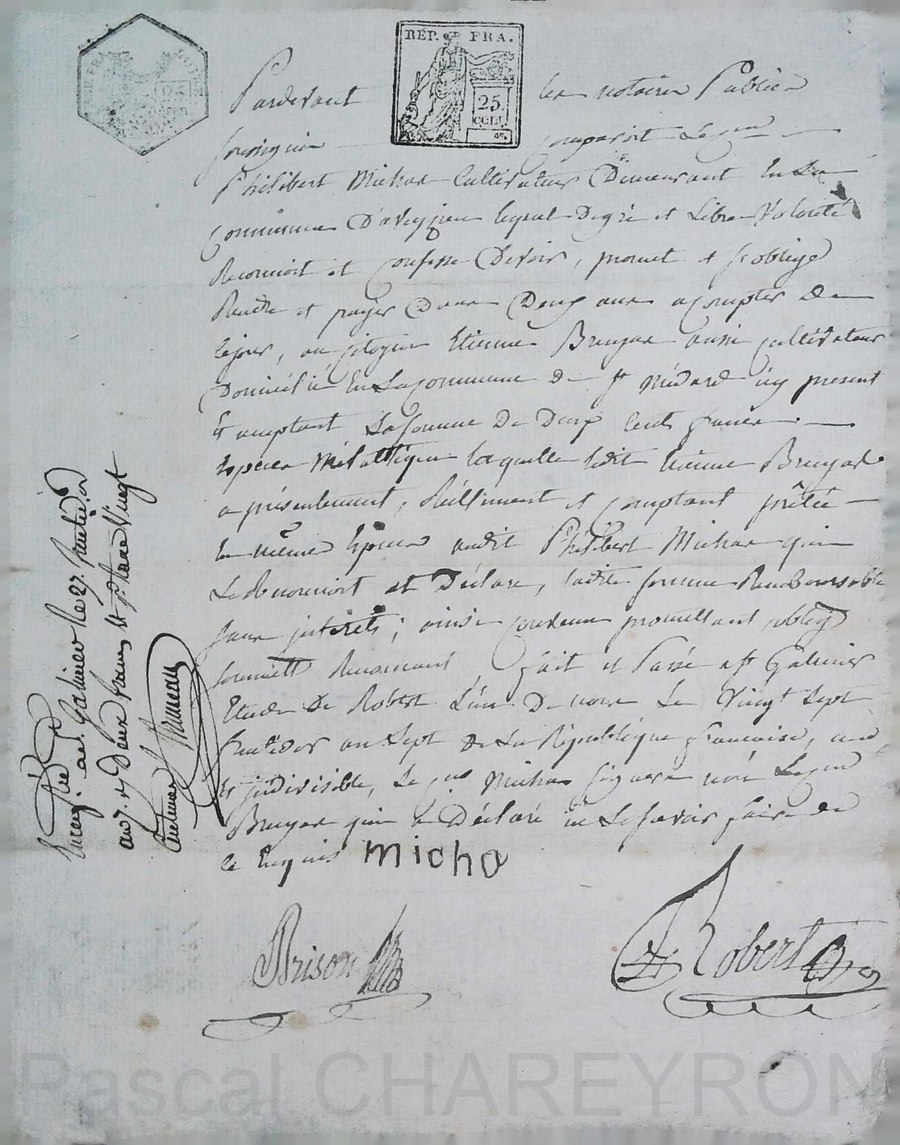 RÉP. FRA.
25
CENT.
Pardevant les notaires Publics
soussignés comparoit Le cen
Philibert Michas Cultivateur Demeurant En La
Commune D'aveyzieu lequel De gré et Libre Volonté
Reconnoit et Confesse Devoir, promet et s'oblige
Rendre et payer Dans Deux ans a Compter De
ce jour, au Citoyen Etienne Bruyas aussi Cultivateur
Domicilié En La Commune De st Médard icy present
Et acceptant La Somme De Deux Cents francs
Especes Métallique laquelle ledit Etienne Bruyas
a présentement, Réellement et Comptant prêtée
En même Especes audit Philibert Michas qui
Le Reconnoit et Déclare, ladite Somme Remboursable
Sans interets; ainsi Convenu promettant obligt
Soumett Renoncant fait et Passé a st Galmier
Etude De Robert L'un De nous Le Vingt Sept
fructidor an Sept De La République française, une
Et indivisible, Le cen Michas Signera non Le cen
Bruyas qui a Déclaré ne Le Savoir faire De
ce Enquis micha
Brison
Robert
Enregistré a st Galmier le 27 fructidor
an 7 Deux francs
Pascal CHAREYRON